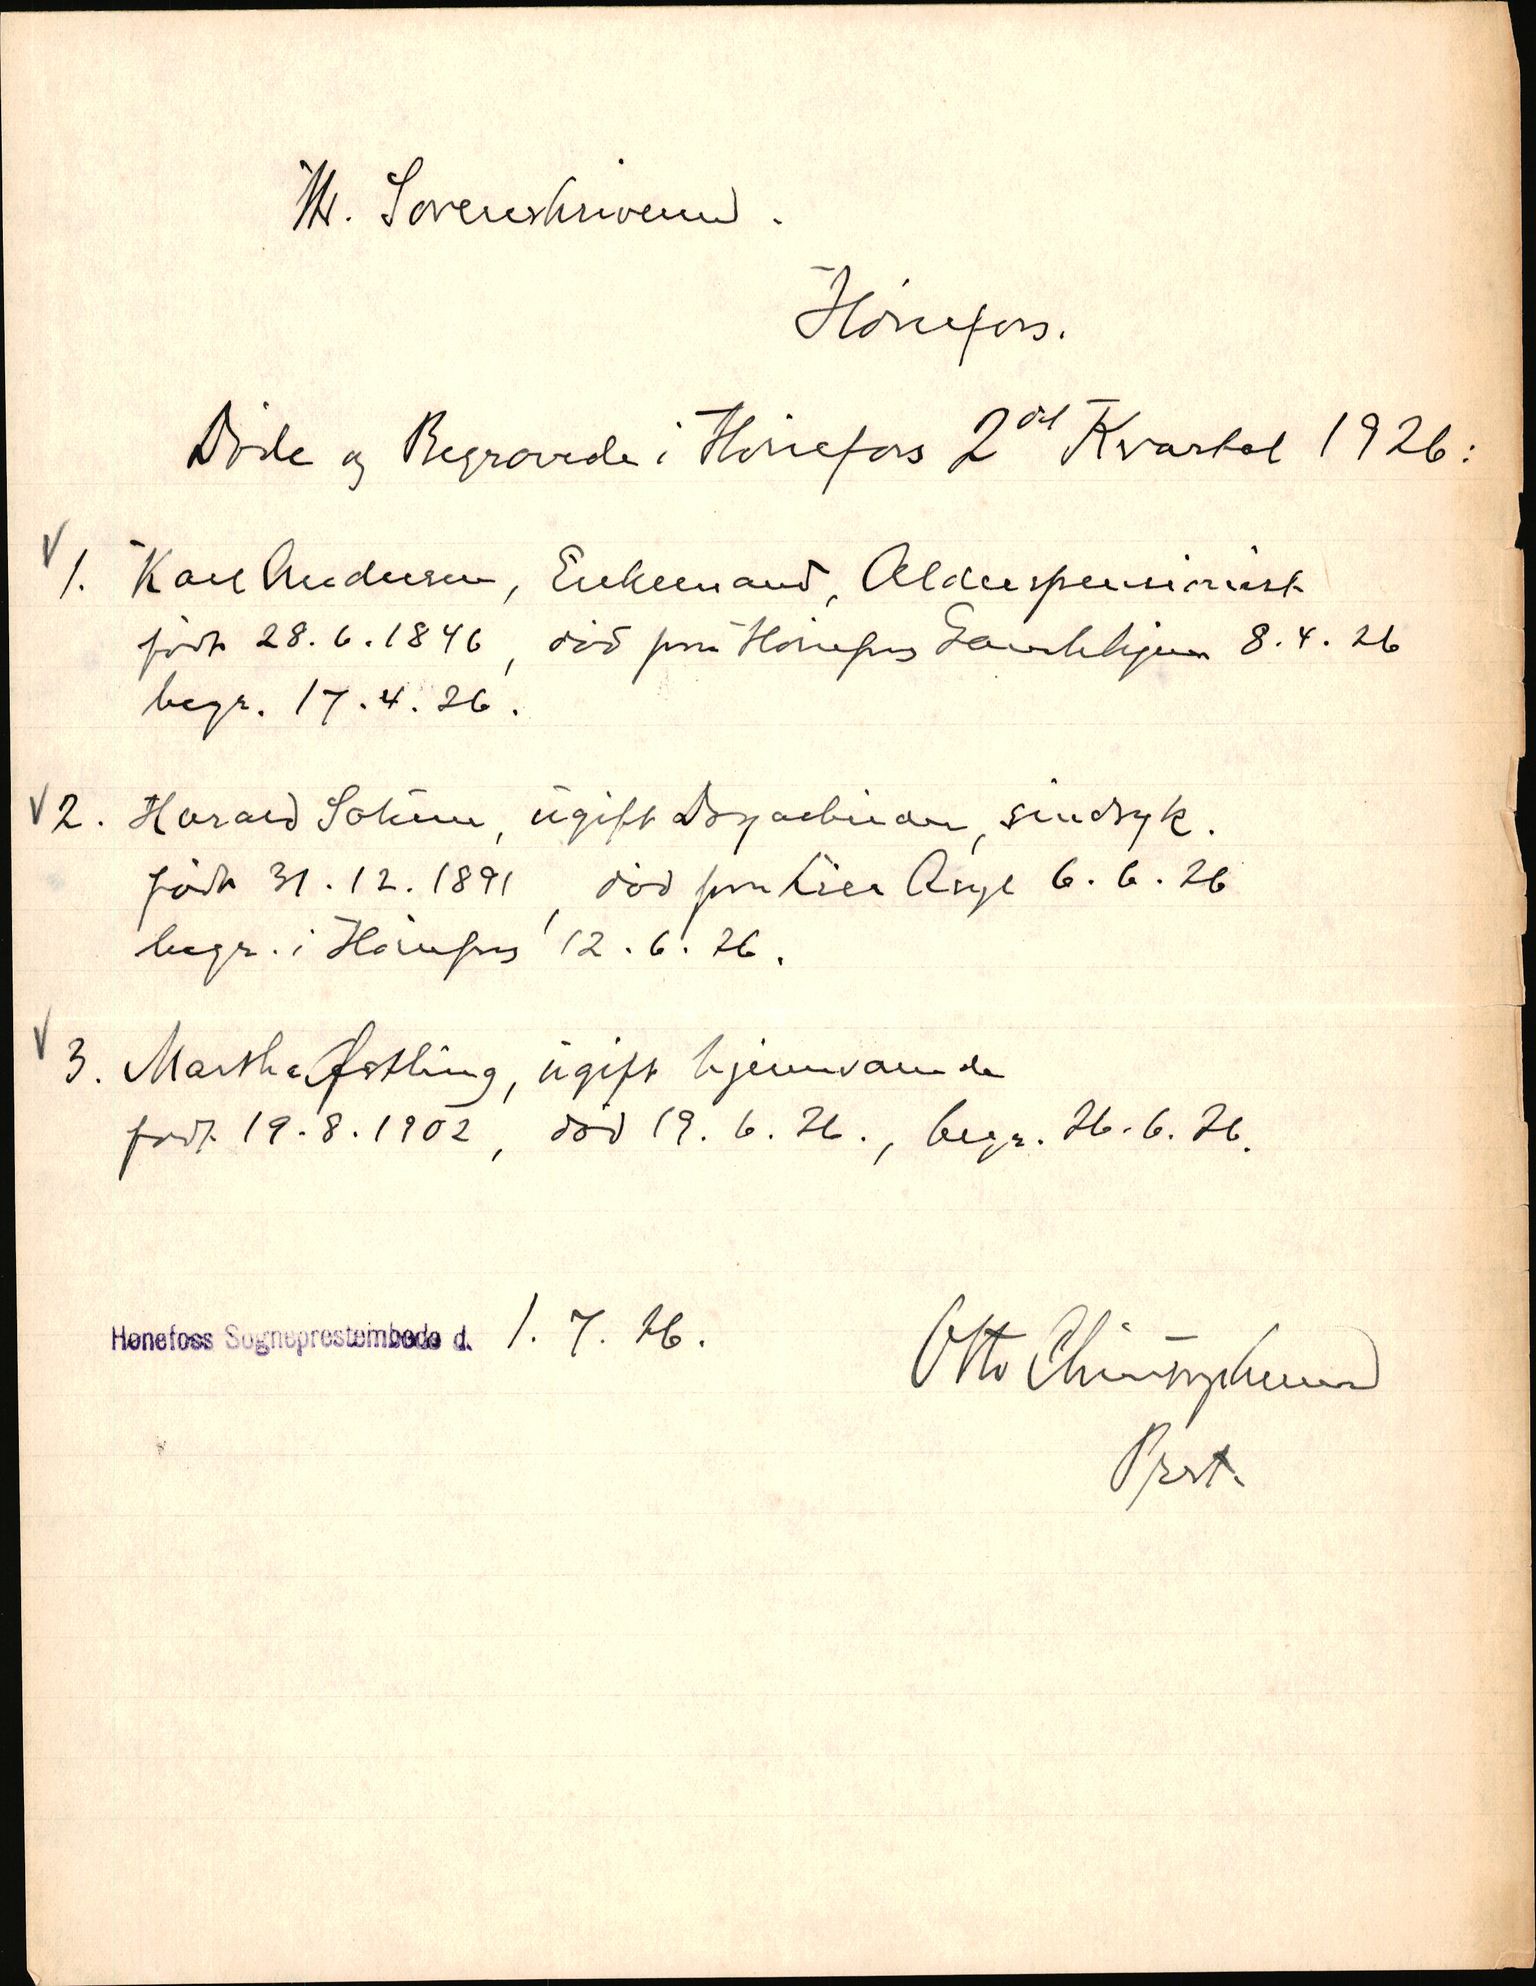 Hr. Sorenskriveren.
Hønefoss.
Døde og Begravede i Hønefoss 2det Kvartal 1926:
1. Karl Andersen, Enkemand, Alderspensionist
født 28.6.1846, død paa Hønefoss Gamlehjem 8.4.26
begr. 17.4.26.
2. Harald Solum, ugift Dagarbeider, sindsyk.
født 31.12.1891, død paa Lier Asyl 6.6.26
begr. i Hønefoss 12.6.26.
3. Martha Østling, ugift hjemmeværende
født 19.8.1902, død 19.6.26., begr. 26.6.26.
Hønefoss Sogneprestembede d. 1.7.26.
Otto
Prest.